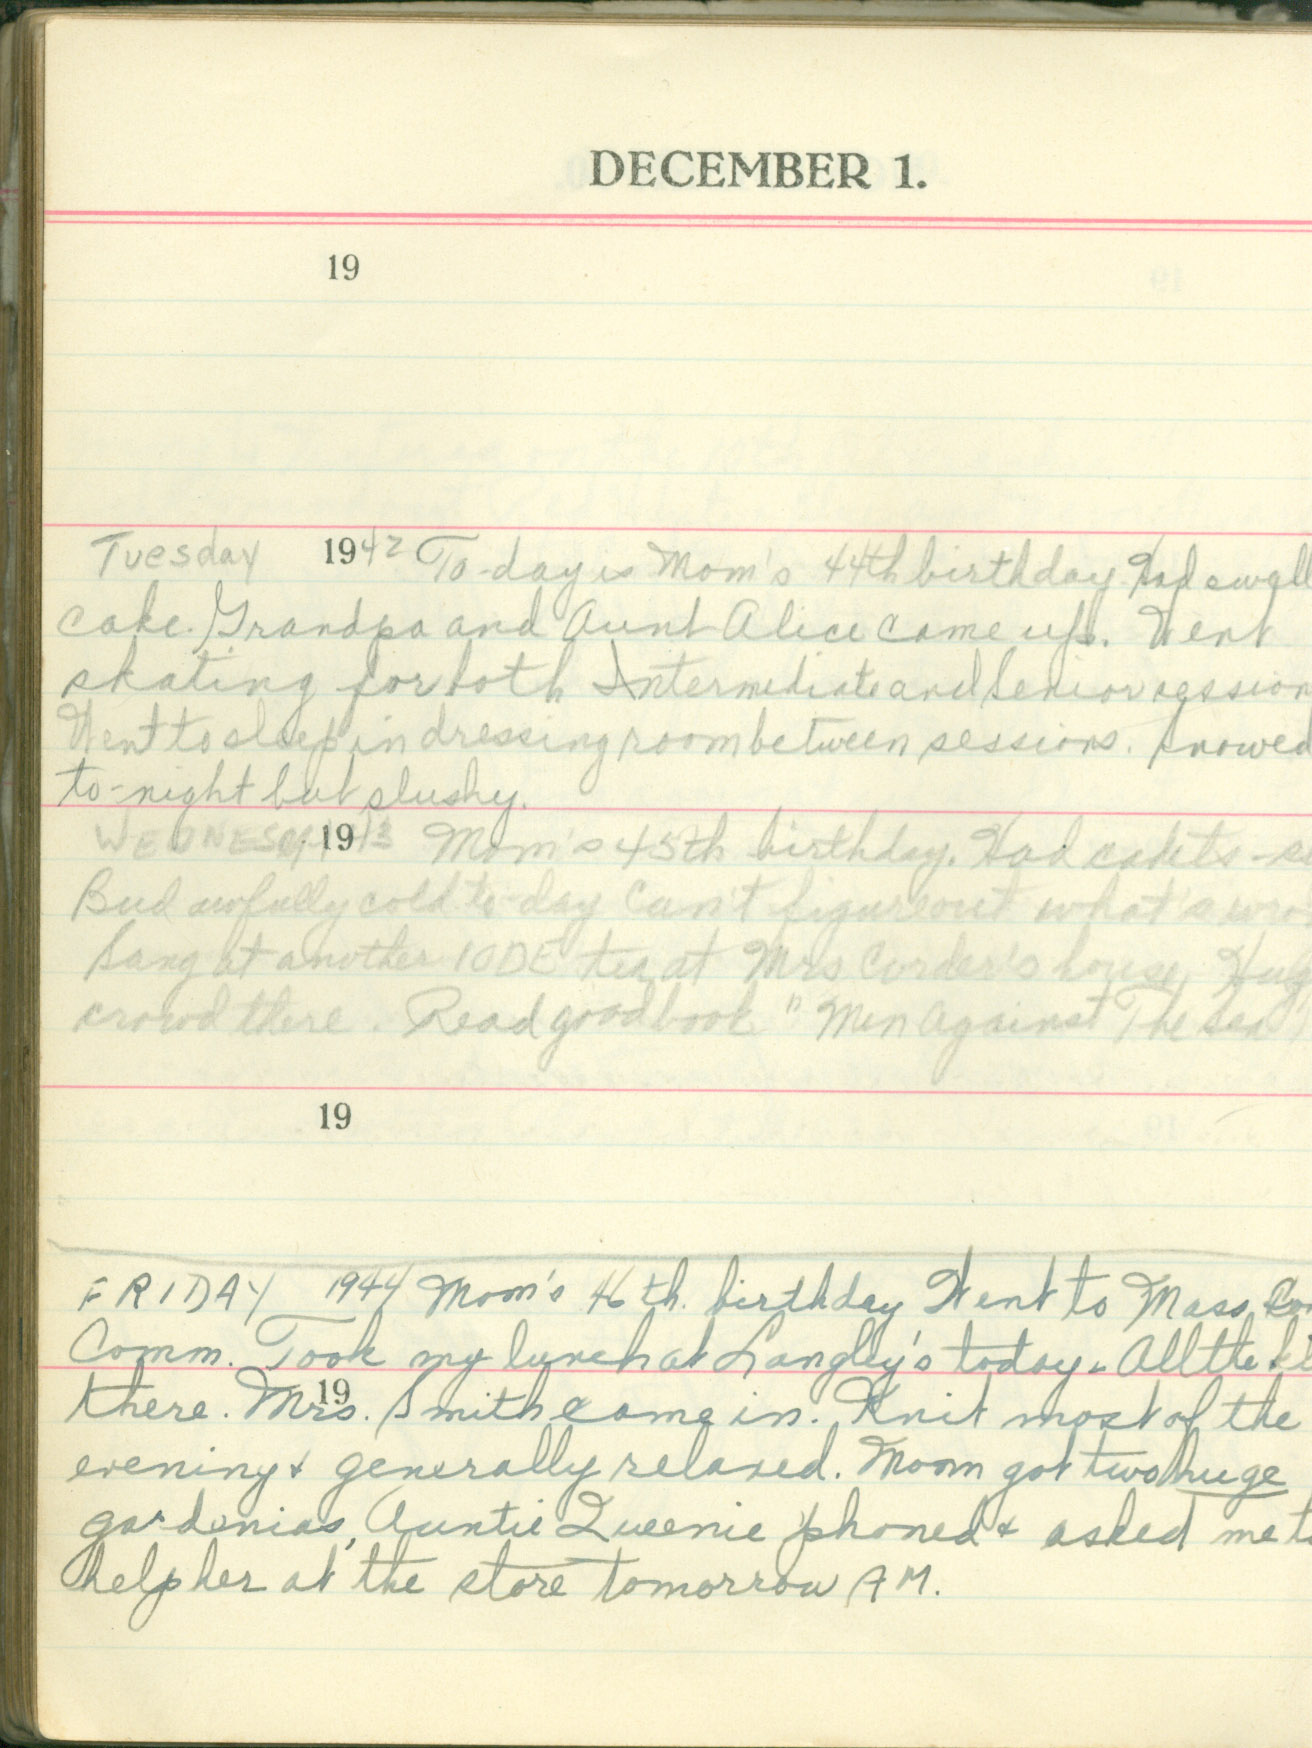 DECEMBER 1.
19
Tuesday 1942 To-day is Mom's 44th birthday. Had swell
cake. Grandpa and Aunt Alice came up. Went
skating for both Intermediate and Senior session
Went to sleep in dressing room between sessions. Snowed
to-night but slushy.
WEDNESDAY 1943 Mom's 45th birthday. Had cadets-
Bud awfully cold to-day Can't figure out what's wro
Sang at another IODE tea at Mrs Corder's house. Hug
crowd there. Read good book "Men Against The Sea"
19
FRIDAY 1944 Mom's 46th. birthday Went to Mass
Comm. Took my lunch at Langley's today. All the
19
there. Mrs. Smith came in. Knit most of the
evening & generally relaxed. Mom got two huge
gardenias, Auntie Queenie phoned & asked me to
help her at the store tomorrow AM.